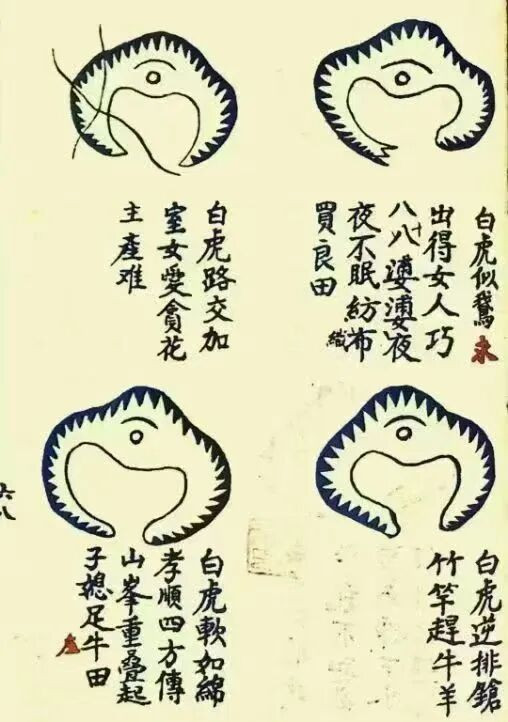 白虎似鵞
出得女人巧
八十八婆婆夜
夜不眠紡織布
買良田
白虎路交加
室女愛貪花
主產难
白虎逆排鎗
竹竿趕牛羊
白虎軟如綿
孝順四方傳
山峯重叠起
子媳足牛田
六八